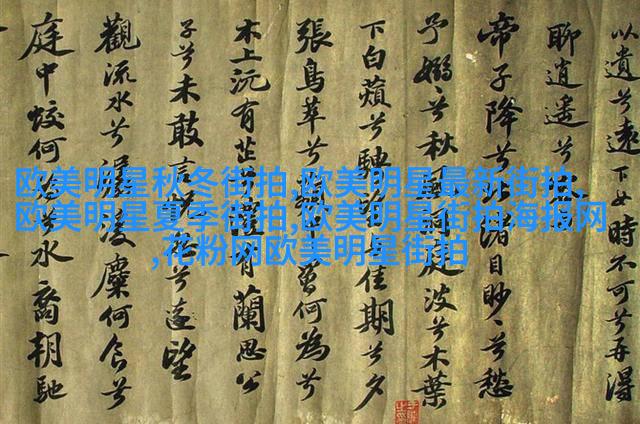 以遺兮遠女時不可兮再得
聊逍遙兮
帝子降兮渚目眇眇兮愁
予嫋嫋兮秋庭波兮木葉
下白蘋兮騁佳期兮夕
張鳥萃兮曾何為兮
木上沅有芷有蘭思公
子兮未敢言兮遠望
觀流水兮潺湲麋何食兮
庭中蛟何水裔朝馳
欧美明星秋冬街拍,欧美明星最新街拍、
欧美明星夏季街拍,欧美明星街拍海报网
,花粉网欧美明星街拍